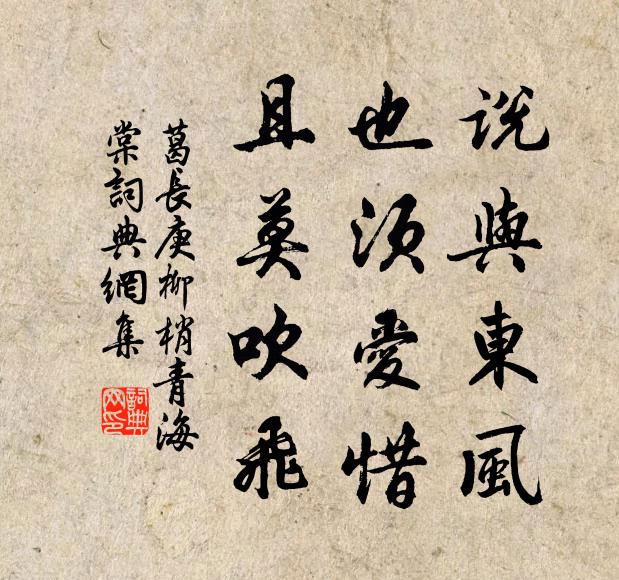 說與東風
也須愛惜
且莫吹飛
葛長庚柳梢青海
棠詞典網集
詞典
网印